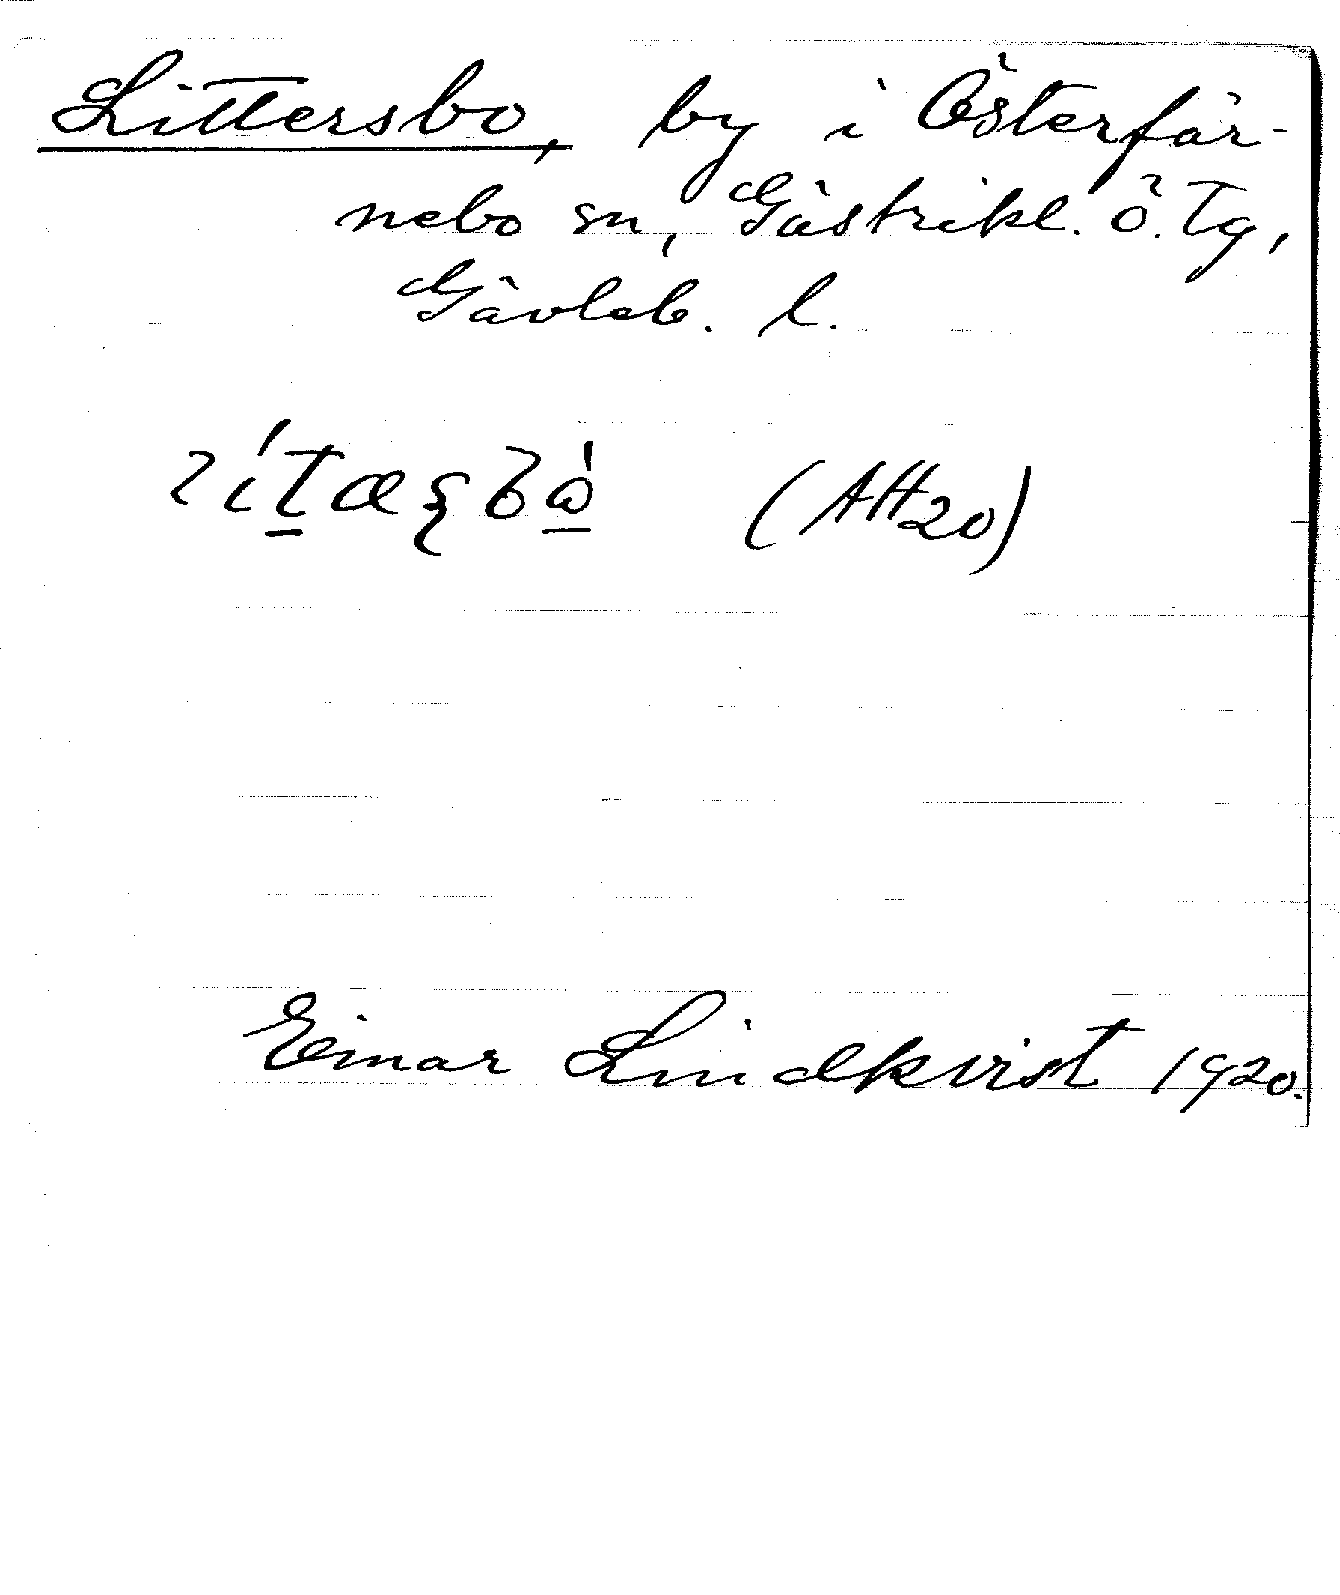 Littersbo, by i Österfär-
nebo sn, Gästrikl. ö. Tg,
Gävleb. l.
(AH20)
Einar Lindkvist 1920.